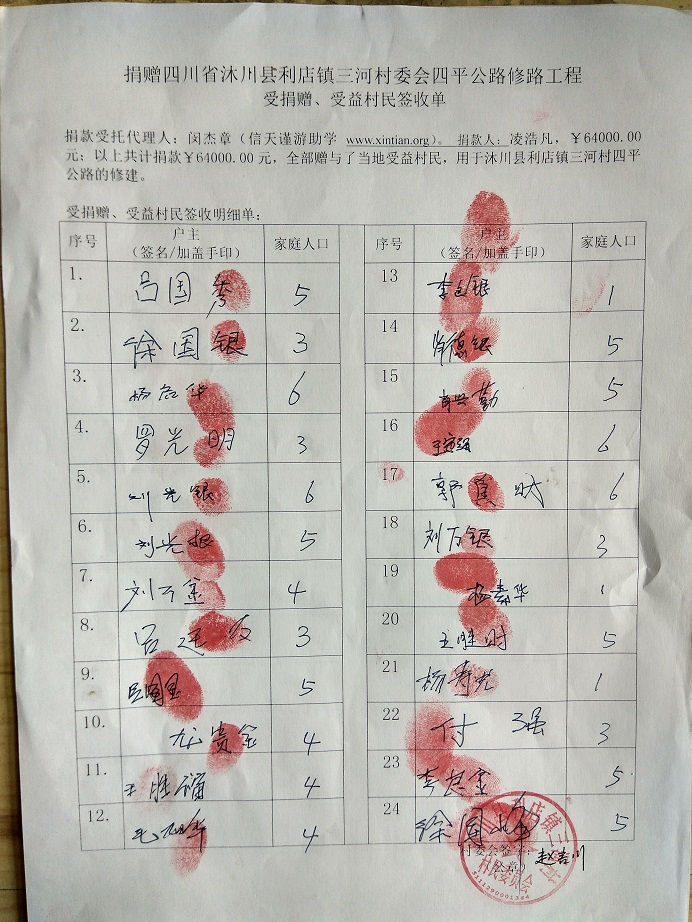 捐赠四川省沐川县利店镇三河村委会四平公路修路工程
受捐赠、受益村民签收单
捐款受托代理人：闵杰章（信天谨游助学 www.xintian.org）。捐款人：凌浩凡，￥64000.00
元；以上共计捐款￥64000.00元，全部赠与了当地受益村民，用于沐川县利店镇三河村四平
公路的修建。
受捐赠、受益村民签收明细单：
序号 户主（签名/加盖手印） 家庭人口 序号 户主（签名/加盖手印） 家庭人口
1. 吕国秀 5 13 1
2. 徐国银 3 14 肖德银 5
3. 杨启华 6 15 勤 5
4. 罗光明 3 16 6
5. 刘光银 6 17 郭 6
6. 刘光根 5 18 刘万银 3
7. 刘万金 4 19 杨素华 1
8. 吕 3 20 王胜财 5
9. 5 21 杨寿光 1
10. 龙贵金 4 22 付强 3
11. 王胜福 4 23 李 金 5
12. 华 4 24 徐国 5
村委会签字：赵吉川
（公章）
利店镇三河村
村民委员会